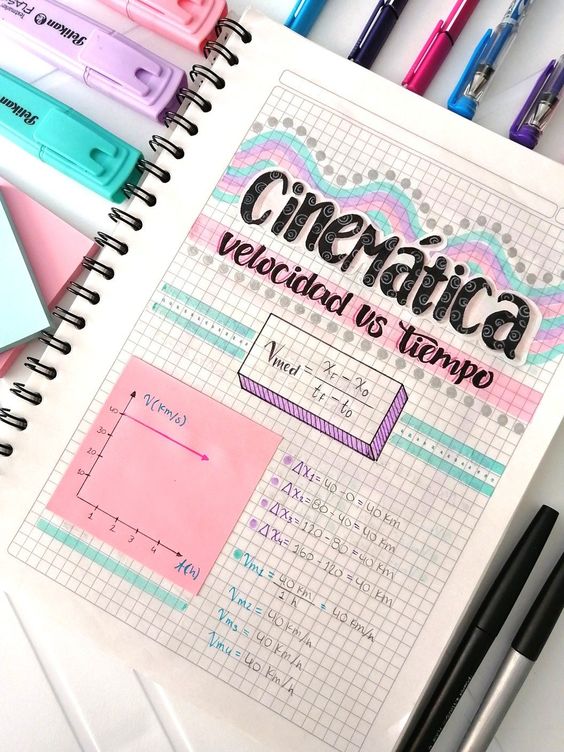 Pelikan
textmarker FLASH
Pelikan
Pelikan
Cinemática
velocidad vs tiempo
Vmed = xF - x0 / tF - t0
V(km/s)
40
30
20
10
1 2 3 4
t(h)
Δx1 = 40 - 0 = 40 km
Δx2 = 80 - 40 = 40 km
Δx3 = 120 - 80 = 40 km
Δx4 = 160 - 120 = 40 km
Vm1 = 40 km / 1 h = 40 km/h
Vm2 = 40 km/h
Vm3 = 40 km/h
Vm4 = 40 km/h